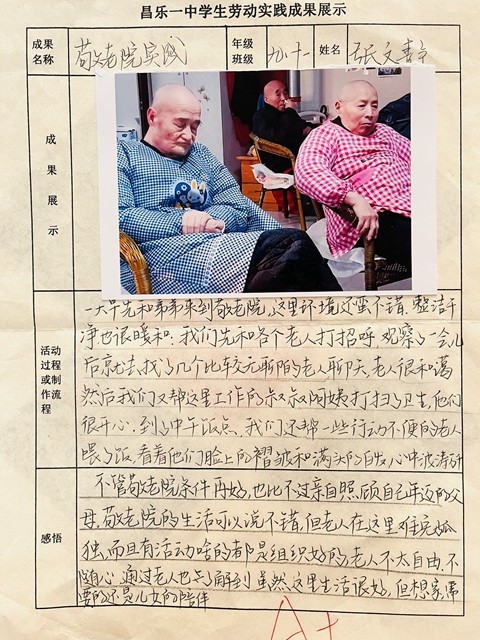 昌乐一中学生劳动实践成果展示
成果名称 敬老院实践 年级班级 九.十一 姓名 张文静
成果展示
一大早先和弟弟来到敬老院,这里环境还蛮不错,整洁干
净也很暖和;我们先和各个老人打招呼,观察了一会儿
后就去找了几个比较无聊的老人聊天,老人很和蔼
然后我们又帮这里工作的叔叔阿姨打扫了卫生,他们
很开心.到了中午饭点,我们还帮一些行动不便的老人
喂了饭,看着他们脸上的褶皱和满头的白发,心中波涛
活动过程或制作流程
不管敬老院条件再好,也比不过亲自照顾自己年迈的父
母,敬老院的生活可以说不错,但老人在这里难免孤
独,而且有活动啥的都是组织好的,老人不太自由、不
随心.通过老人也了解到虽然这里生活很好,但想家需
要的还是儿女的陪伴
感悟
A+